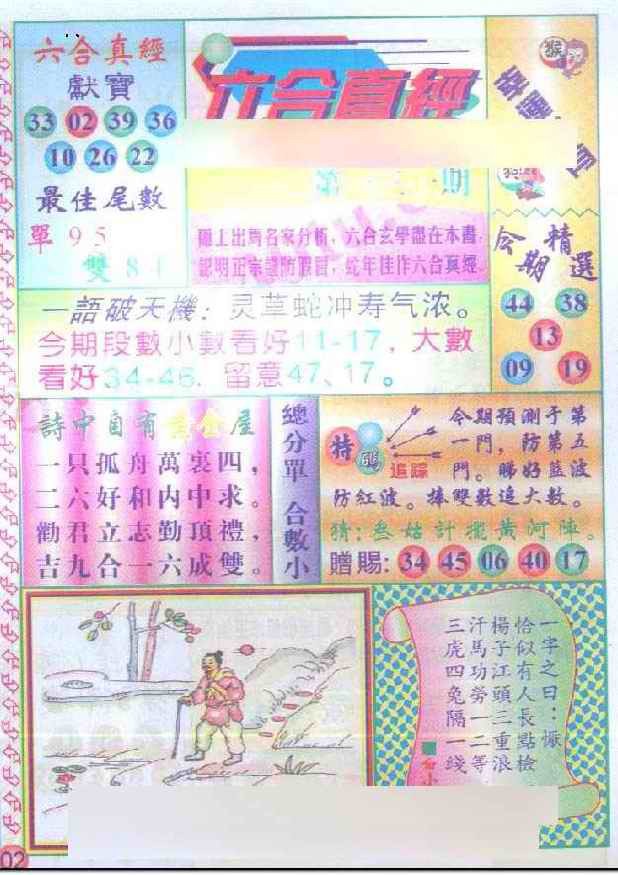 六合真經
獻寶
33 02 39 36
10 26 22
最佳尾數
單 9 5
雙 8
六合真經
第
期
猴
六合玄學盡在本書.
蛇年佳作六合真經.
今期精選
44 38
13
09 19
一語破天機：灵草蛇冲寿气浓。
今期段數小數看好11-17，大數
看好34-46．留意47、17。
詩中自有黃金屋
一只孤舟萬裏四，
二六好和内中求。
勸君立志勤頂禮，
吉九合一六成雙。
總分單 合數小
特碼
追踪
今期預測于第
一門，防第五
門。睇好藍波
防紅波。捧雙數追大數。
猜：叁姑計擺黄河陣。
贈賜：34 45 06 40 17
一字之曰：懨
恰似有人長點檢
楊子江頭二重浪
汗馬功勞一二等
三虎四兔隔一綫
02